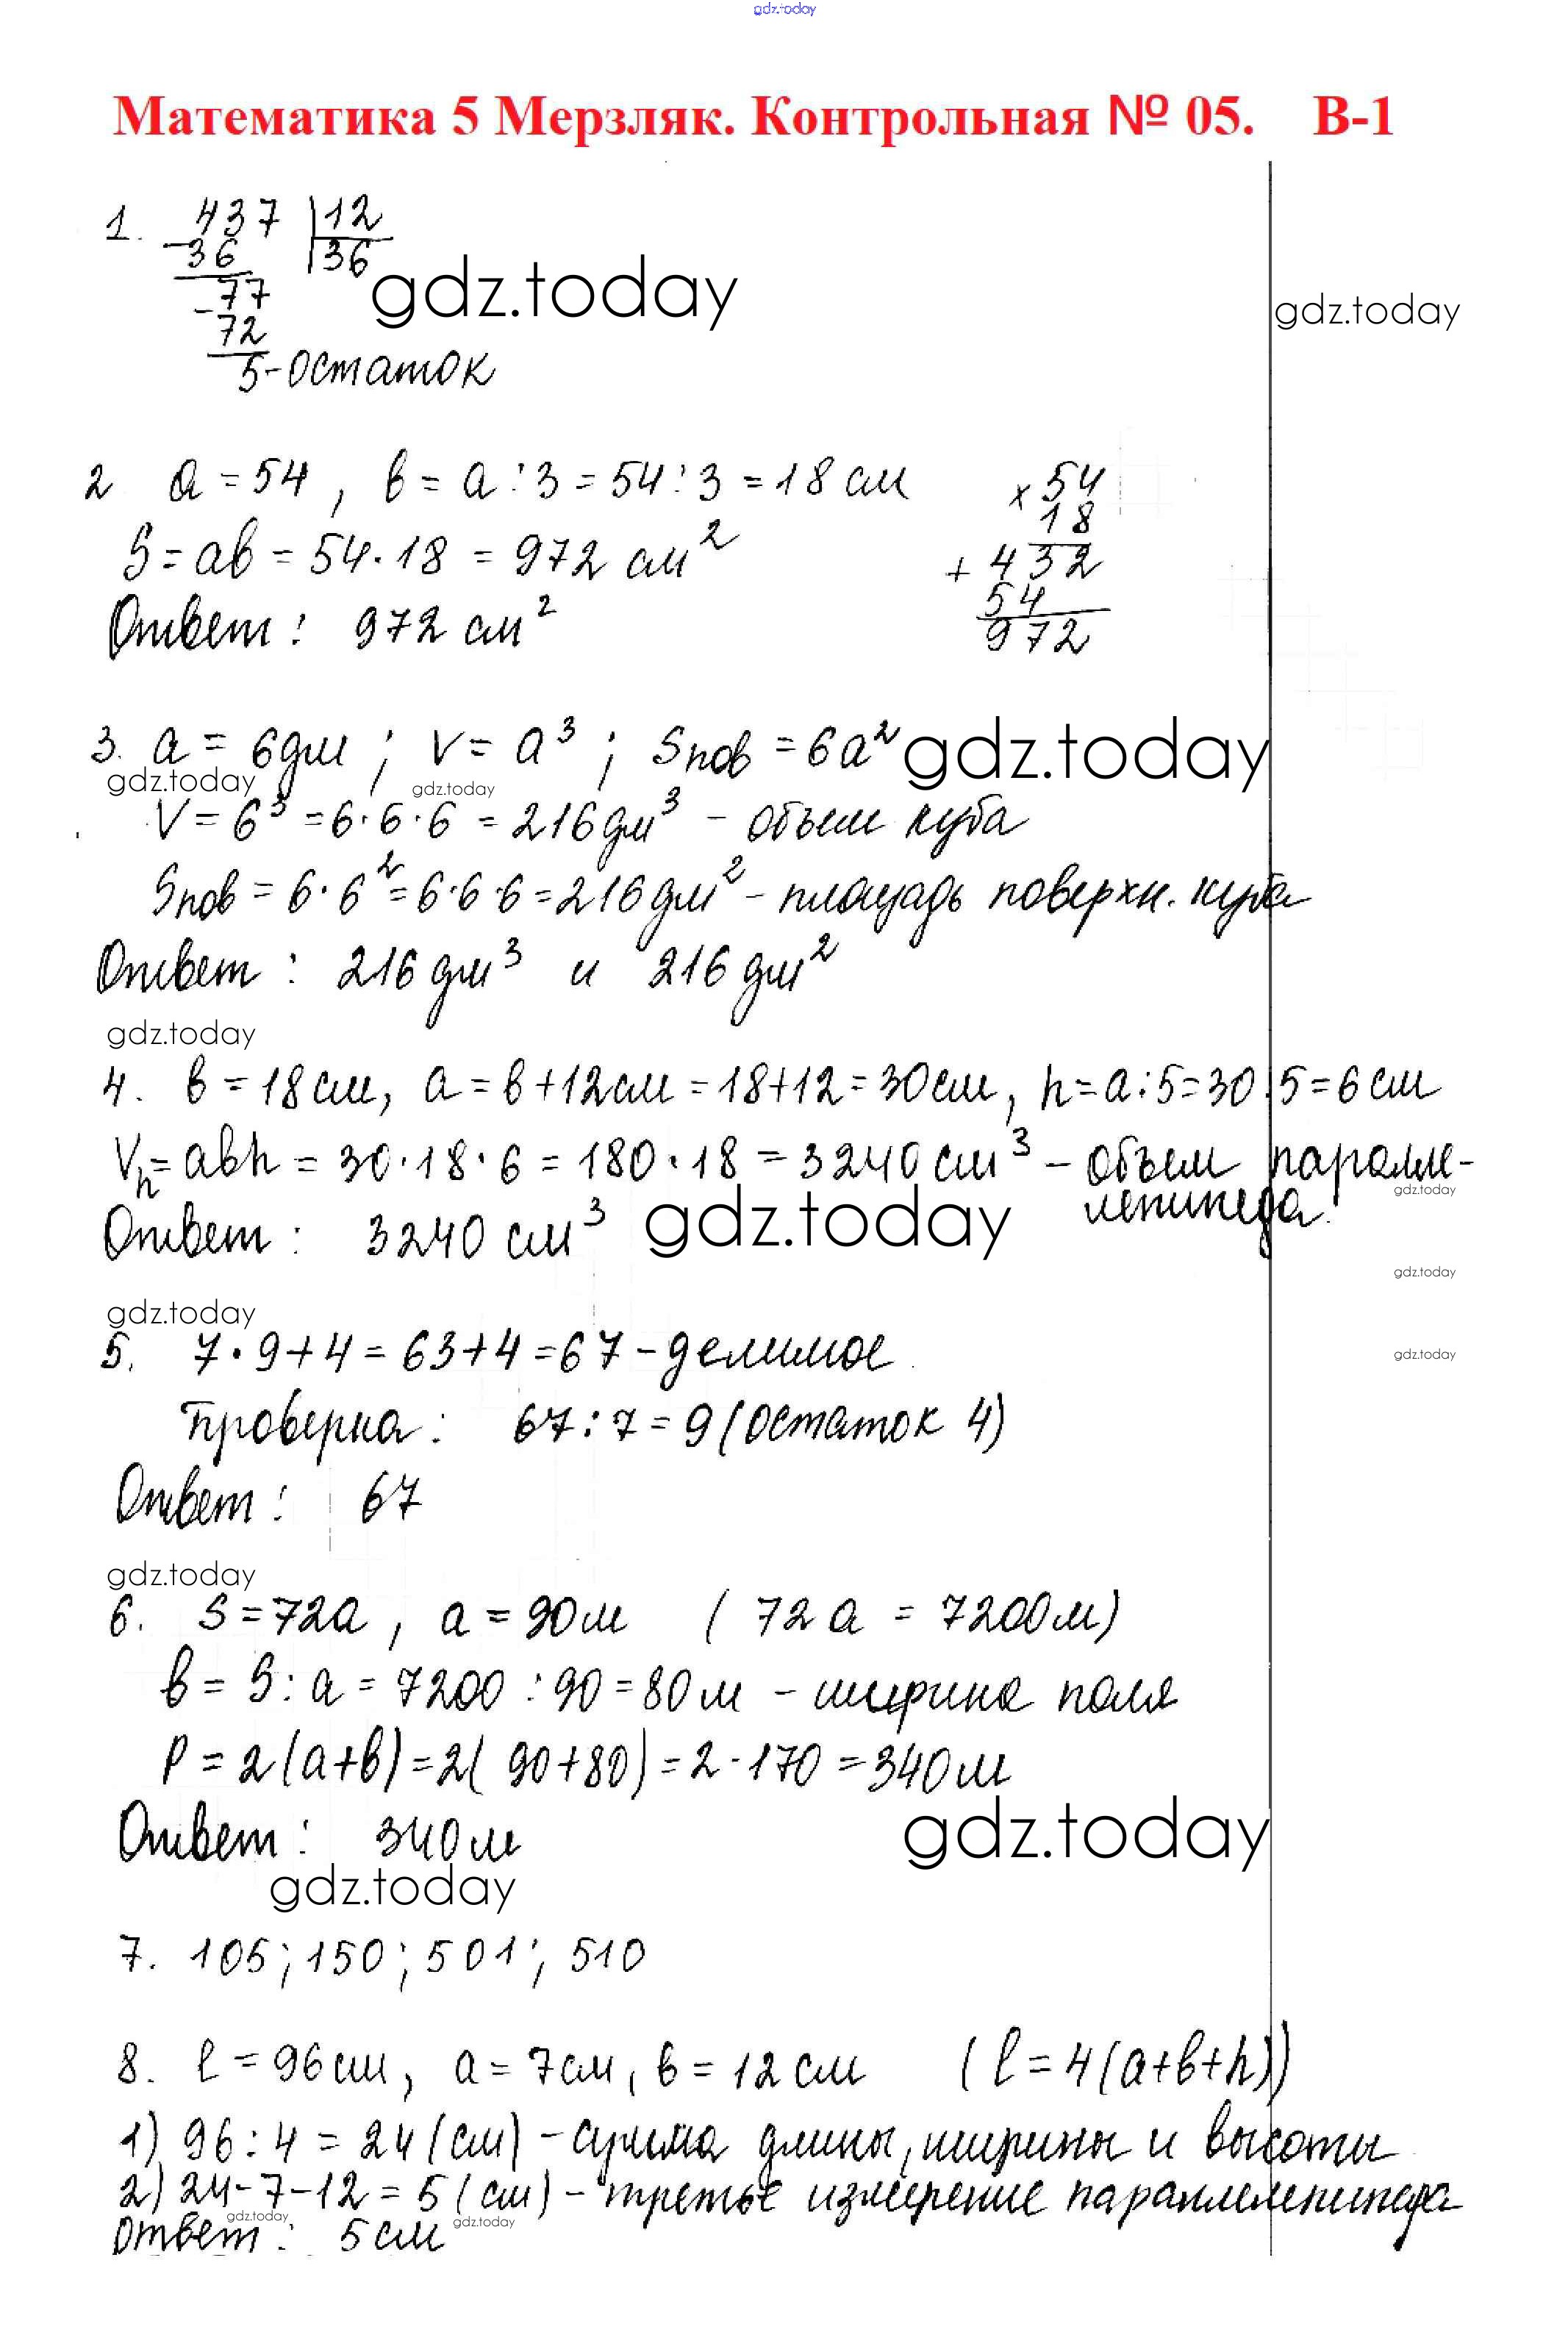 gdz.today
Математика 5 Мерзляк. Контрольная № 05. В-1
1. 437 | 12
- 36 | 36
gdz.today
gdz.today
- 77
72
5-остаток
2 a = 54, в = a : 3 = 54 : 3 = 18 см
× 54
18
S = aв = 54 · 18 = 972 см²
+ 432
54
Ответ: 972 см²
972
3. a = 6дм; V = a³; Sпов = 6a²
gdz.today
gdz.today
gdz.today
V = 6³ = 6·6·6 = 216 дм³ - объем куба
Sпов = 6·6² = 6·6·6 = 216 дм² - площадь поверхн. куба
Ответ: 216 дм³ и 216 дм²
gdz.today
4. в = 18 см, a = в + 12 см = 18 + 12 = 30 см, h = a : 5 = 30 : 5 = 6 см
Vh = aвh = 30 · 18 · 6 = 180 · 18 = 3240 см³ - объем паралле-
gdz.today
лепипеда.
Ответ: 3240 см³
gdz.today
gdz.today
gdz.today
5. 7 · 9 + 4 = 63 + 4 = 67 - делимое
gdz.today
Проверка: 67 : 7 = 9 (остаток 4)
Ответ: 67
gdz.today
6. S = 72a, a = 90 м (72 a = 7200 м)
в = S : a = 7200 : 90 = 80 м - ширина поля
P = 2(a+в) = 2(90+80) = 2 · 170 = 340 м
Ответ: 340 м
gdz.today
gdz.today
7. 105; 150; 501; 510
8. ℓ = 96 см, a = 7 см, в = 12 см (ℓ = 4(a+в+h))
1) 96 : 4 = 24 (см) - сумма длины, ширины и высоты
2) 24 - 7 - 12 = 5 (см) - третье измерение параллелепипеда
gdz.today
gdz.today
Ответ: 5 см